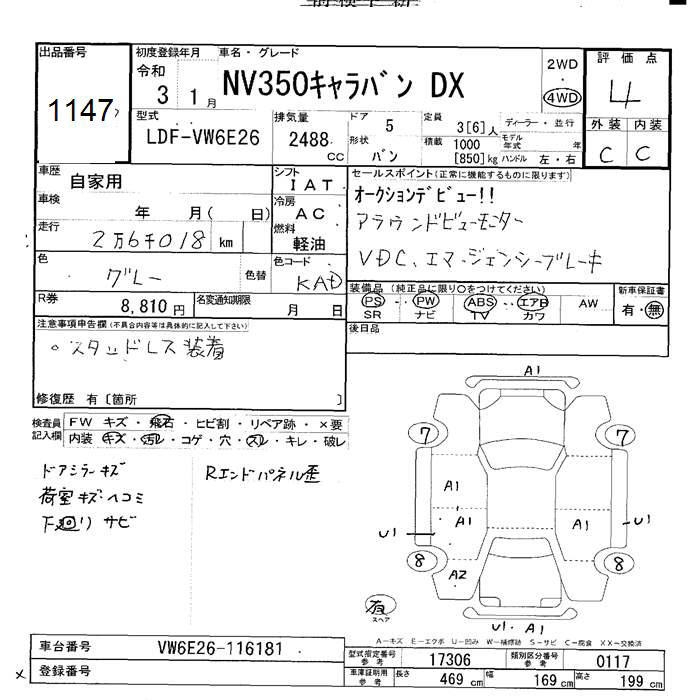 出品番号
1147
初度登録年月
令和
3 1月
車名・グレード
NV350キャラバン DX
2WD
・
4WD
評価点
4
外装 内装
C C
型式
LDF-VW6E26
排気量
2488 CC
ドア 5
形状 バン
定員 3[6]人
積載 1000 [850]kg
ディーラー・並行
モデル年式 年
ハンドル 左・右
車歴
自家用
車検
年 月( 日)
走行
2万6千018 km
色
グレー
色替
シフト
IAT
冷房
AC
燃料
軽油
色コード
KAD
R券
8,810円
名変通知期限
月 日
セールスポイント(正常に機能するものに限ります)
オークションデビュー!!
アラウンドビューモニター
VDC、エマージェンシーブレーキ
装備品(純正品に限り○をつけてください)
PS・PW ABS・エアB AW
SR ナビ TV カワ
新車保証書
有・無
後日品
注意事項申告欄(不具合内容等は具体的に記入して下さい)
○スタッドレス装着
修復歴 有〔箇所 〕
検査員記入欄
FW キズ・飛石・ヒビ割・リペア跡・×要
内装 キズ・汚レ・コゲ・穴・スレ・キレ・破レ
ドアミラーキズ
荷室キズ・ヘコミ
下廻りサビ
Rエンドパネル歪
A1
7 7
A1
U1 A1 A1 U1
8 8
A2
有
スペア
U1・A1
A-キズ E-エクボ U-凹み W-補修跡 S-サビ C-腐食 XX-交換済
車台番号
VW6E26-116181
登録番号
型式指定番号 参考
17306
類別区分番号 参考
0117
車庫証明用 参考
長さ 469 cm
幅 169 cm
高さ 199 cm